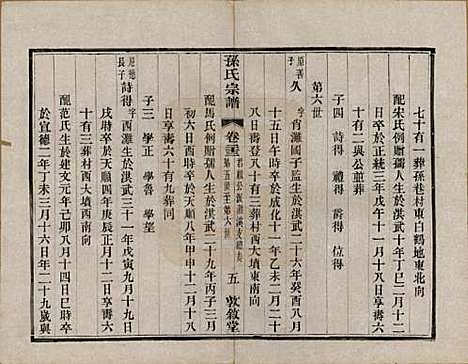 七十有一葬孫巷村東白鶴地東北向
配宋氏例贈孺人生於洪武十年丁巳二月十二
日卒於正統三年戊午八月十二日享壽六
十有二與公並葬
子四 詩得 禮得 爵得 位得
第六世
原善子 久 字宥灘國子監生於洪武二十六年癸酉八月
十五日午時卒於成化十一年乙未二月二十
八日壽八十有三葬村西大墳東南向
配馬氏例贈孺人生於洪武二十九年丙子三月
時卒於天順八年甲申十二月十八
日享壽六十有九葬同
子三 學正 學魯 學望
孫氏宗譜
卷三
第五世至第六世
五
敦敘堂
長子 詩得 字酉灘生於洪武三十一年戊寅九月十七日
戌時卒於天順四年庚辰正月十二日享壽六
十有三葬村西大墳西南向
配范氏生於建文元年己卯八月十四日巳時卒
於宣德二年丁未三月十六日年二十九歲與